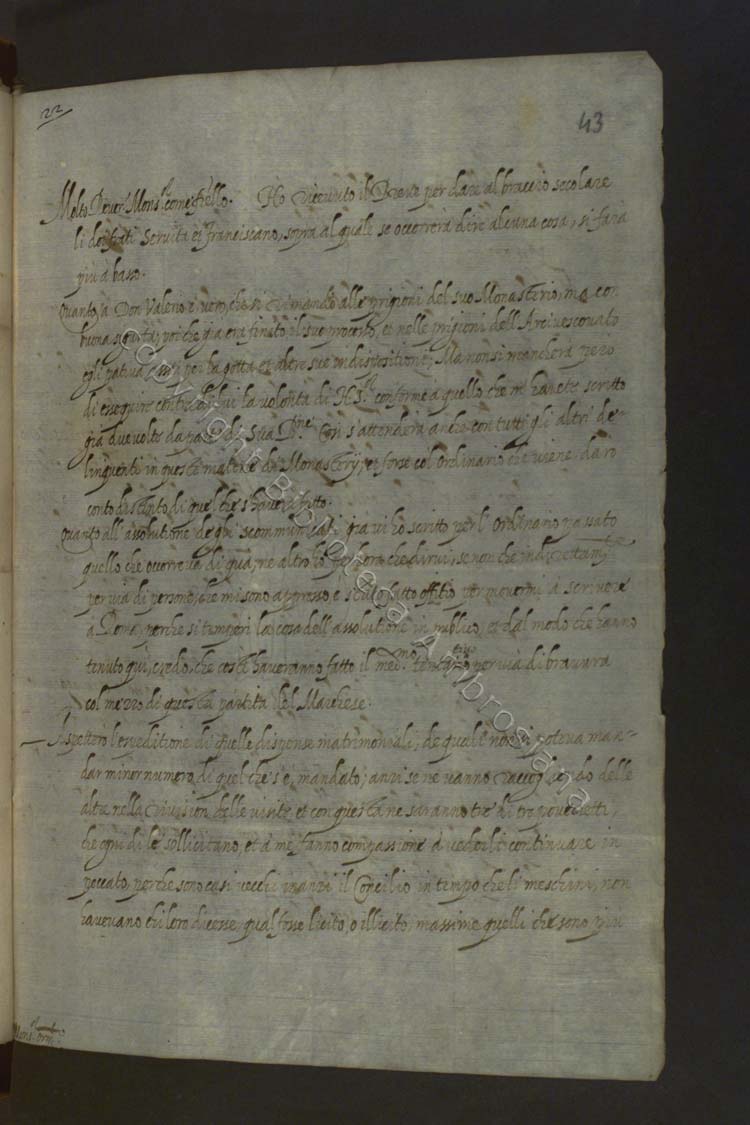 22
43
Molto Rever. Mons.r come fr̃ello. Ho ricevuto il Breve per dare al braccio secolare
li doi frati Servita et franciscano, sopra al quale se occorrerà dire alcuna cosa, si farà
più à basso.
Quanto, à Don Valerio è vero, che si rimandò alle prigioni del suo Monasterio, ma con
buona sigurtà, perche già era finito il suo processo, et nelle prigioni dell'Arcivescovato
egli pativa assai per la gotta et altre sue indispositioni; Ma non si mancherà però
di essequire contra di lui la volontà di N. S.re conforme à quello che m'havete scritto
già due volte da parte di Sua B.ne Così s'attenderà anche con tutti gli altri de-
linquenti in queste materie di Monasterij, et forse col ordinario che viene darò
conto distinto di quel che s'haverà fatto.
Quanto all'assolutione de gli scommunicati già vi hò scritto per l'ordinario passato
quello che occorreva di quà, ne altro hò per hora che dirvi, se non che indirettam.te
per via di persone, che mi sono appresso è stato fatto offitio per movermi à scrivere
à Roma, perche si temperi la cosa dell'assolutione in publico, et dal modo che hanno
tenuto quì, credo, che costì haveranno fatto il med.mo tentativo per via di bravura
col mezzo di questa partita del Marchese.
Aspetterò l'espeditione di quelle dispense matrimoniali, de quali non si poteva man-
dar minor numero di quel che s'è mandato; anzi se ne vanno raccogliendo delle
altre nella division delle visite et con questa ne saranno tre di tre poveretti,
che ogni dì le sollicitano, et à me fanno compassione à vederli continuare in
peccato, perche sono casi vecchi inanzi il Concilio in tempo che li meschini, non
havevano chi loro dicesse, qual fosse licito, o illicito, massime quelli che sono più
Mons.r
Copyright Biblioteca Ambrosiana